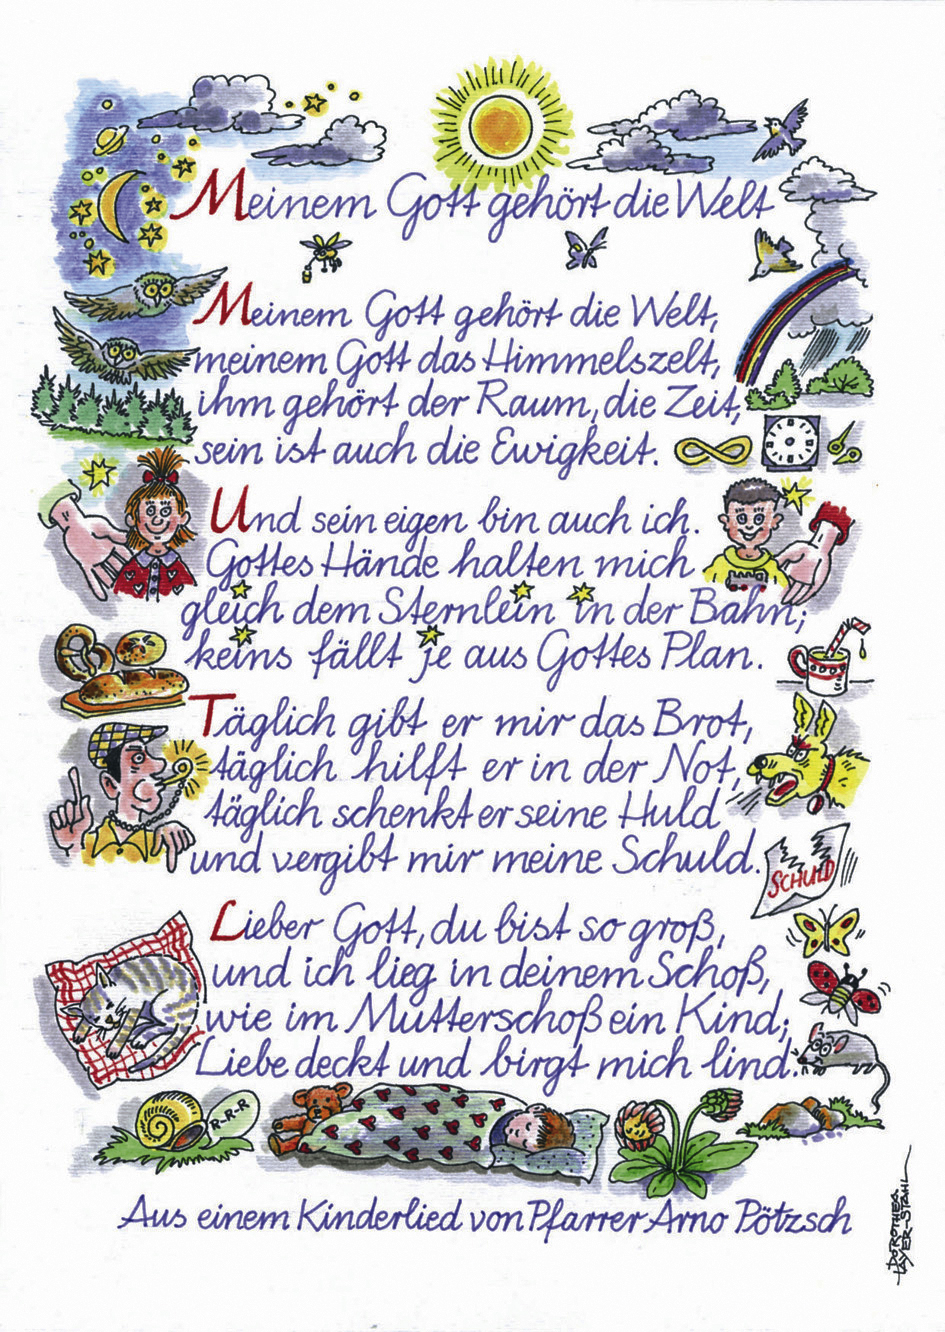 Meinem Gott gehört die Welt
Meinem Gott gehört die Welt,
meinem Gott das Himmelszelt,
ihm gehört der Raum, die Zeit,
sein ist auch die Ewigkeit.
Und sein eigen bin auch ich.
Gottes Hände halten mich
gleich dem Sternlein in der Bahn;
keins fällt je aus Gottes Plan.
Täglich gibt er mir das Brot,
täglich hilft er in der Not,
täglich schenkt er seine Huld
und vergibt mir meine Schuld.
SCHULD
Lieber Gott, du bist so groß,
und ich lieg in deinem Schoß,
wie im Mutterschoß ein Kind;
Liebe deckt und birgt mich lind.
R-R-R
Aus einem Kinderlied von Pfarrer Arno Pötzsch
DOROTHEA
LAYER-STAHL